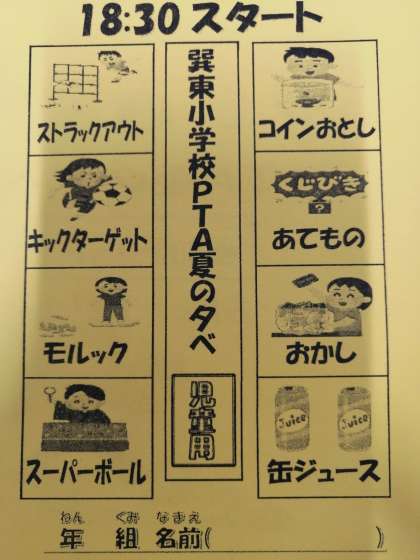 18:30 スタート
ストラックアウト
キックターゲット
モルック
スーパーボール
巽東小学校PTA夏の夕べ
児童用
コインおとし
くじびき
?
あてもの
おかし
Juice
Juice
缶ジュース
ねん くみ なまえ
年 組 名前( )